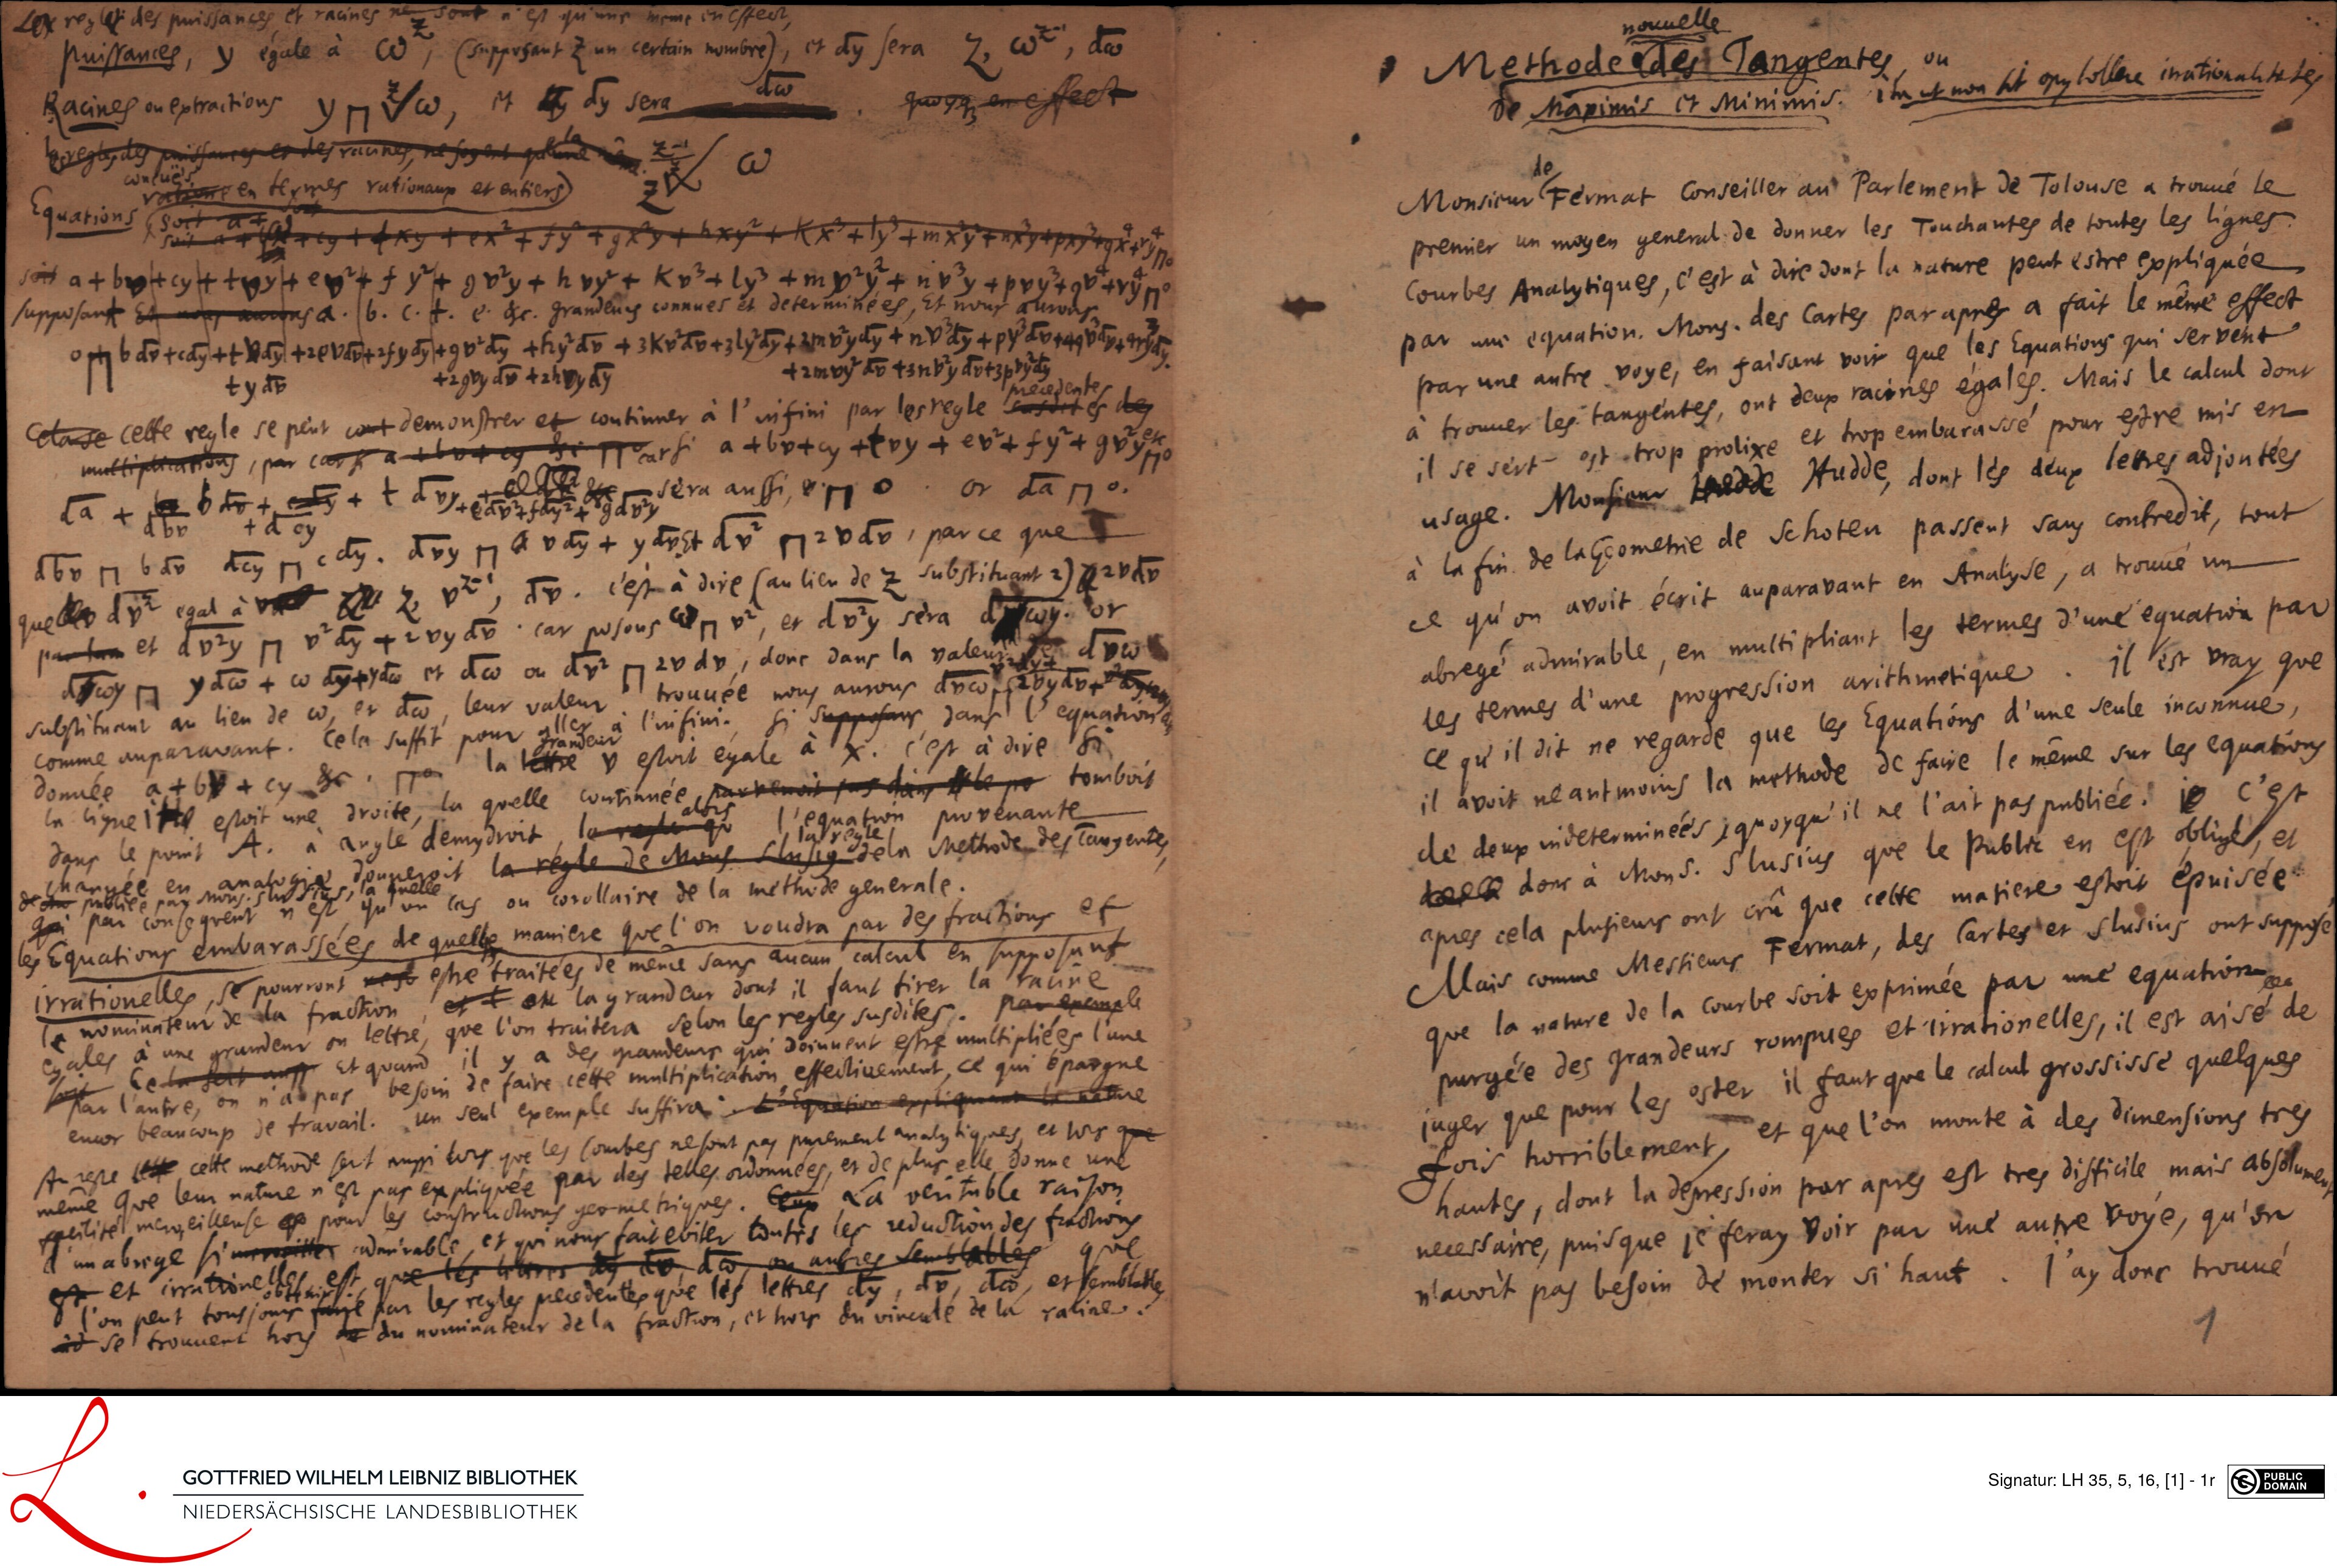 Les regles des puissances et racines ne sont n'est qu'une meme en effect,
puissances, y égale à ω^z, (supposant z un certain nombre), et dy sera z, ω^z-1, dω
Racines ou extractions y ⊓ z√ω, et dy dy sera dω . quoyq en effect
les regles des puissances et des racines, ne soyent
z-1/z √ ω
z
conçues en termes rationaux et entiers)
Equations (soit a +
soit a + bx + cy + txy + ex² + fy² + gx²y + hxy² + kx³ + ly³ + mx²y² + nx³y + pxy³ + qx⁴ + ry⁴ ⊓ 0
soit a + bv + cy + tvy + ev² + fy² + gv²y + hvy² + kv³ + ly³ + mv²y² + nv³y + pvy³ + qv⁴ + ry⁴ ⊓ 0
supposant Et nous aurons a. b. c. t. e. &c. grandeurs connues et determinées, Et nous aurons
0 ⊓ b dv + c dy + tv dy + 2ev dv + 2fy dy + gv² dy + hy² dv + 3kv² dv + 3ly² dy + 2mv²y dy + nv³ dy + py³ dv + 4qv³ dv + 4ry³ dy.
+ ty dv + 2gvy dv + 2hvy dy + 2mvy² dv + 3nv²y dv + 3pvy² dy
cette regle se peut demonstrer et continuer à l'infini par les regle precedentes susdites des
multiplications, par car si a + bv + cy &c ⊓ 0 car si a + bv + cy + tvy + ev² + fy² + gv²y etc ⊓ 0
da + b dv + + t dvy + &c sera aussi, ⊓ 0 . or da ⊓ 0.
dbv + dcy + edv² + fdy² + gdv²y
dbv ⊓ b dv dcy ⊓ c dy. dvy ⊓ v dy + y dv Et dv² ⊓ 2v dv, parce que
dv² egal à z, v^z-1, dv. c'est à dire (au lieu de z substituant 2) 2v dv
et dv²y ⊓ v² dy + 2vy dv. car posons ω ⊓ v², et dv²y sera dωy. or
dωy ⊓ y dω + ω dy et dω ou dv² ⊓ 2v dv, donc dans la valeur de dvω
substituant au lieu de ω, et dω, leur valeur trouvée nous aurons
comme auparavant. Cela suffit pour aller à l'infini. Si supposons dans l'equation
donnée a + bv + cy &c. ⊓ 0 la lettre grandeur v estoit égale à x. c'est à dire si
la ligne estoit une droite, la quelle continuée parvenoit pas dans tomboit
dans le point A. à angle demydroit, la regle qu alors l'equation provenante
changée en analogie donneroit la régle de Mons. Slusig la regle de la Methode des tangentes,
publiée par Mons. Slusius, la quelle
qui par consequent n'est qu'un cas ou corollaire de la méthode generale.
les Equations embarassées de quelle maniere que l'on voudra par des fractions et
irrationelles, se pourront estre traitées de même sans aucun calcul en supposant
le nominateur de la fraction, et la grandeur dont il faut tirer la racine
egales à une grandeur ou lettre, que l'on traitera selon les regles susdites. par exemple
Ce Et quand il y a des grandeurs qui doiuuent estre multipliées l'une
par l'autre, on n'a pas besoin de faire cette multiplication effectiuement, ce qui épargne
encor beaucoup de travail. un seul exemple suffira. L'Equation expliquant la nature
Au reste cette methode sert aussi lors que les Courbes ne sont pas purement analytiques, et lors que
même que leur nature n'est pas expliquée par des telles ordonnées, et de plus elle donne une
facilité merveilleuse pour les constructions geometriques. La veritable raison
d'un abrege si admirable, et qui nous fait eviter toutes les reduction des fractions
et irrationelles, est, que les lettres dy dv dω, ou autres semblables que
l'on peut tousjours obtenir par les regles precedentes que les lettres dy, dv, dω, et semblables
se trouvent hors du nominateur de la fraction, et hors du vincule de la racine.
nouvelle
Methode des Tangentes, ou
de Maximis et Minimis. ita ut non sit opus tollere irrationalitates
Monsieur de Fermat Conseiller au Parlement de Tolouse a trouvé le
premier un moyen general de donner les Touchantes de toutes les lignes
Courbes Analytiques, c'est à dire dont la nature peut estre expliquée
par une equation. Mons. des Cartes par apres a fait le même effect
par une autre voye, en faisant voir que les Equations qui servent
à trouver les tangentes, ont deux racines égales. Mais le calcul dont
il se sert est trop prolixe et trop embarassé pour estre mis en
usage. Monsieur Hudde Hudde, dont les deux lettres adjoutées
à la fin de la Geometrie de Schoten passent sans contredit, tout
ce qu'on avoit écrit auparavant en Analyse, a trouvé un
abregé admirable, en multipliant les termes d'une equation par
les termes d'une progression arithmetique. Il est vray que
ce qu'il dit ne regarde que les Equations d'une seule inconnue,
il avoit neantmoins la methode de faire le même sur les equations
de deux indeterminées, quoyqu'il ne l'ait pas publiée. C'est
donc à Mons. Slusius que le Public en est obligé, et
apres cela plusieurs ont crû que cette matiere estoit épuisée
Mais comme Messieurs Fermat, des Cartes et Slusius ont supposé
que la nature de la courbe soit exprimée par une equation
purgée des grandeurs rompues et irrationelles, il est aisé de
juger que pour les oster il faut que le calcul grossisse quelques
fois horriblement, et que l'on monte à des dimensions tres
hautes, dont la depression par apres est tres difficile mais absolument
necessaire, puisque je feray voir par une autre voye, qu'on
n'avoit pas besoin de monter si haut. J'ay donc trouvé
1
GOTTFRIED WILHELM LEIBNIZ BIBLIOTHEK
NIEDERSÄCHSISCHE LANDESBIBLIOTHEK
Signatur: LH 35, 5, 16, [1] - 1r
PUBLIC DOMAIN